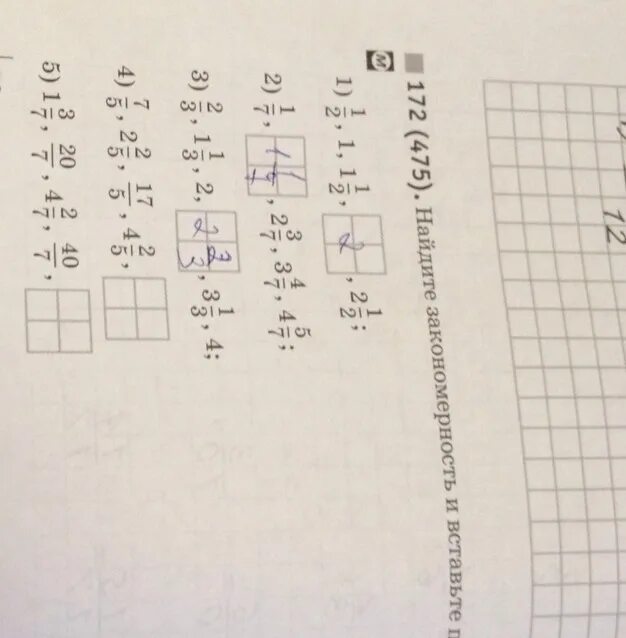 12
172 (475). Найдите закономерность и вставьте
М
1) 1/2, 1, 1 1/2, 2, 2 1/2;
2) 1/7, 1, 2 3/7, 3 4/7, 4 5/7;
3) 2/3, 1 1/3, 2, 2 2/3, 3 1/3, 4;
4) 7/5, 2 2/5, 17/5, 4 2/5,
5) 1 3/7, 20/7, 4 2/7, 40/7,